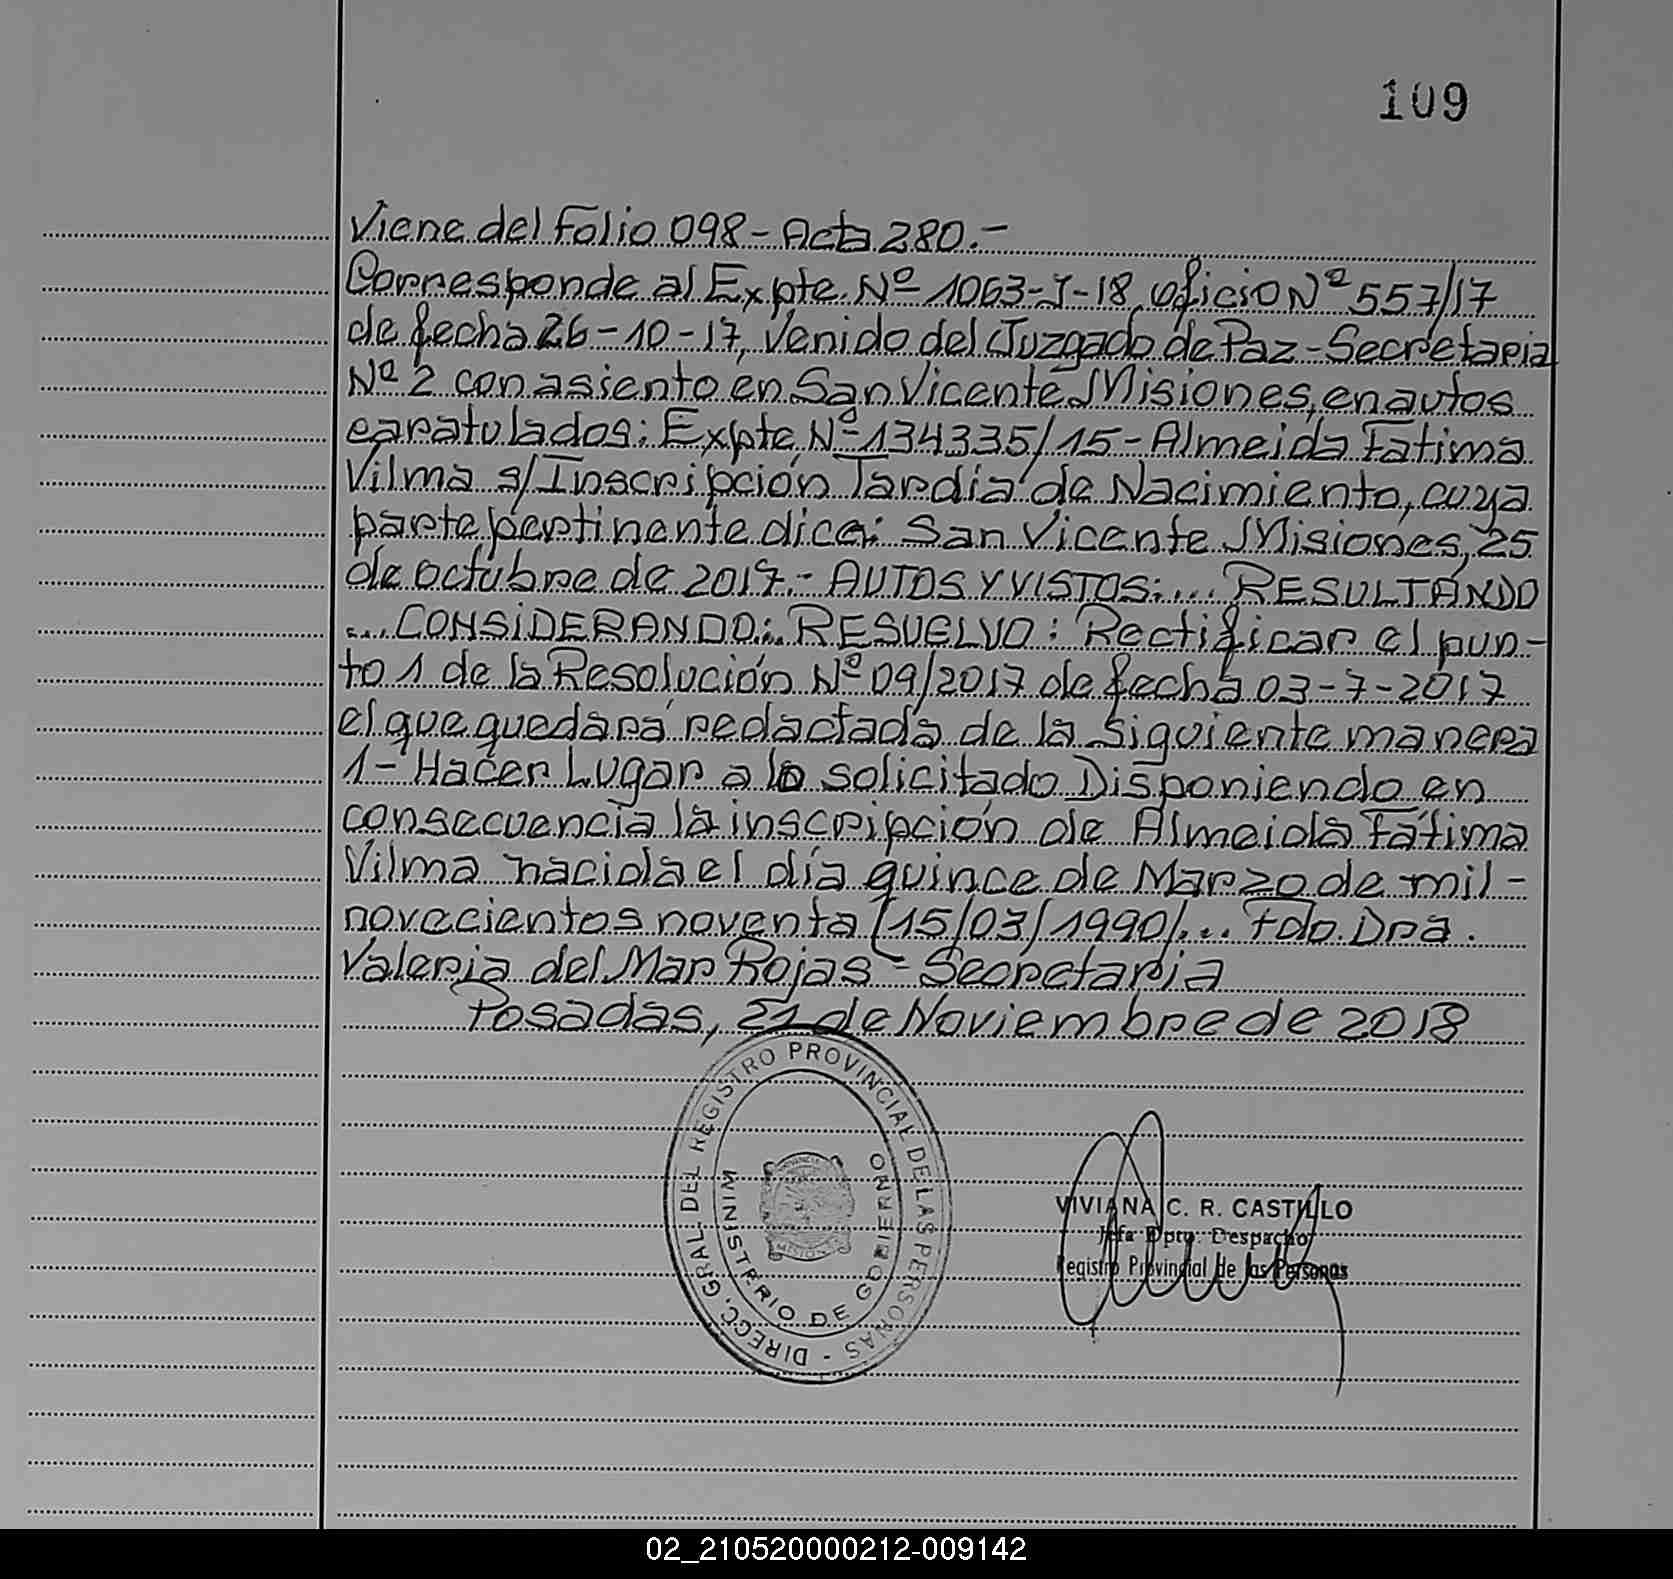 109
Viene del Folio 098 - Acta 280.-
Corresponde al Expte. Nº 1063-J-18, oficio Nº 557/17
de fecha 26-10-17, Venido del Juzgado de Paz - Secretaria
Nº 2 con asiento en San Vicente Misiones, en autos
caratulados: Expte. Nº 134335/15 - Almeida Fatima
Vilma s/Inscripción Tardía de Nacimiento, cuya
parte pertinente dice: San Vicente Misiones, 25
de octubre de 2017.- AUTOS Y VISTOS:... RESULTANDO
... CONSIDERANDO:.. RESUELVO: Rectificar el pun-
to 1 de la Resolución Nº 09/2017 de fecha 03-7-2017
el que quedará redactada de la siguiente manera
1- Hacer Lugar a lo solicitado Disponiendo en
consecuencia la inscripción de Almeida Fátima
Vilma nacida el día quince de Marzo de mil-
novecientos noventa (15/03/1990)... Fdo. Dra.
Valeria del Mar Rojas - Secretaria
Posadas, 21 de Noviembre de 2018
DIRECC. GRAL. DEL REGISTRO PROVINCIAL DE LAS PERSONAS -
MINISTERIO DE GOBIERNO
MISIONES
VIVIANA C. R. CASTILLO
Jefa Dpto. Despacho
Registro Provincial de las Personas
02_210520000212-009142